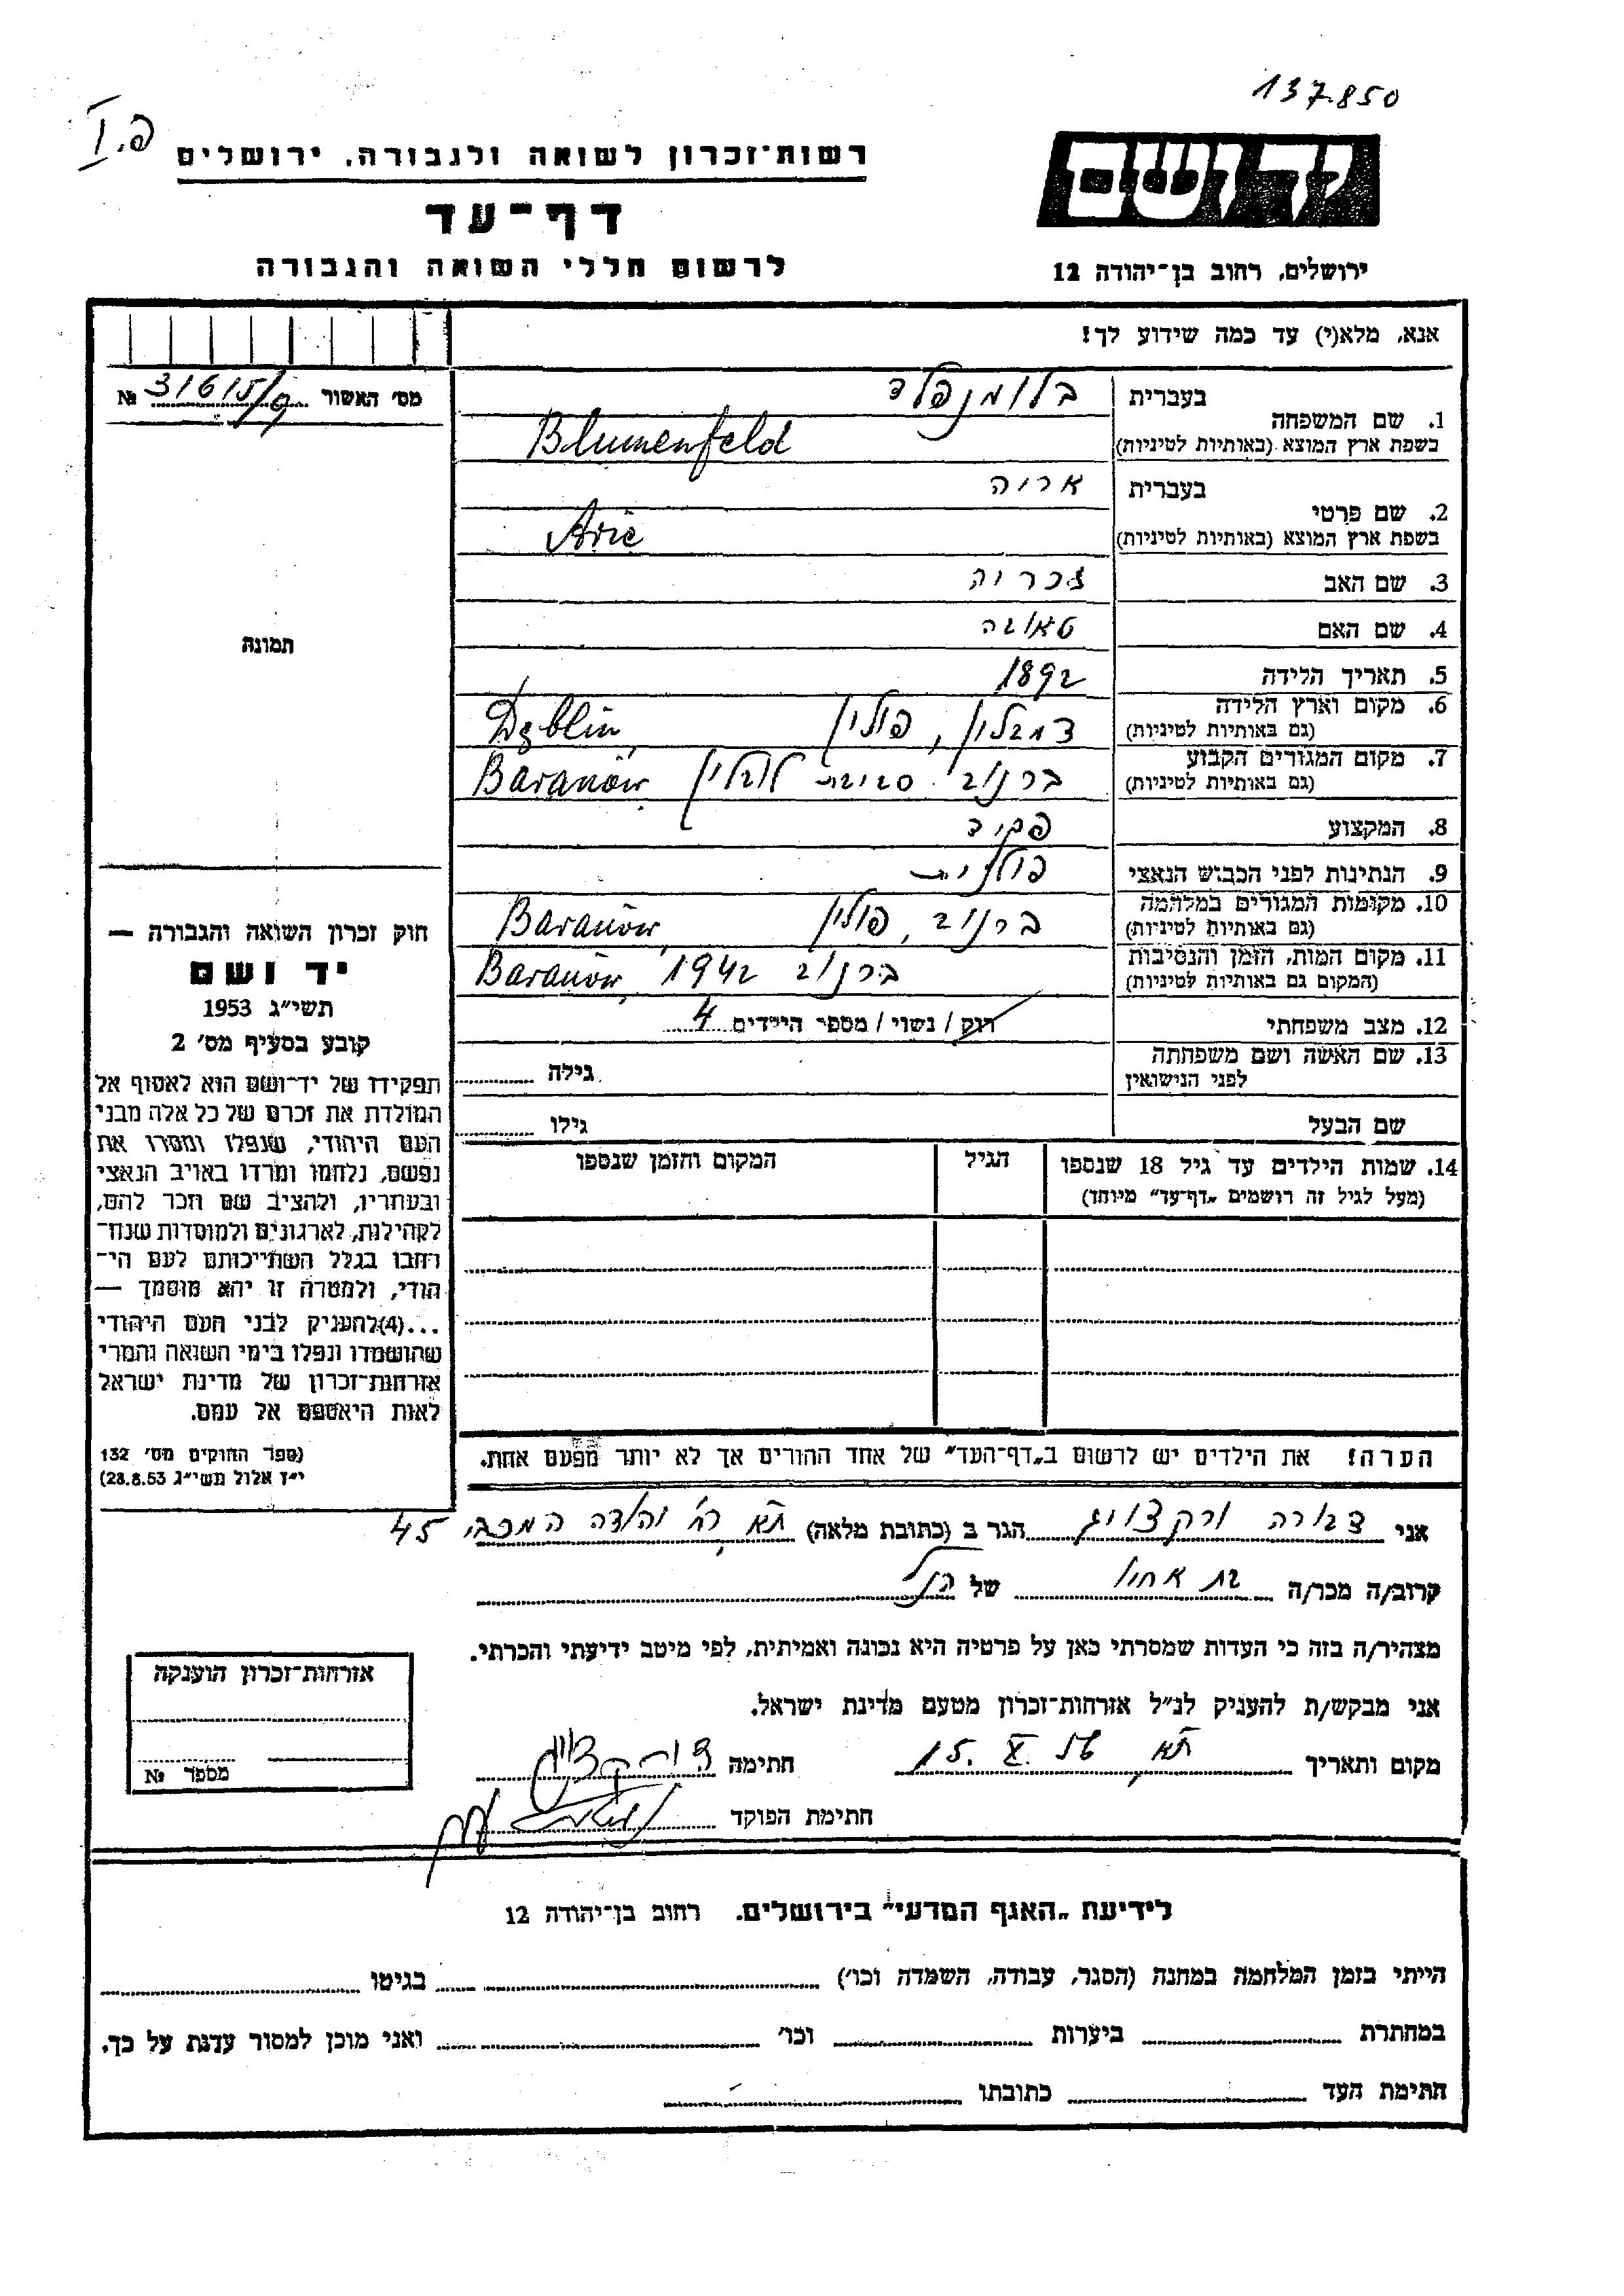 137.850
פ. I
רשות־זכרון לשואה ולגבורה, ירושלים
יד ושם
דף־עד
לרשום חללי השואה והגבורה
ירושלים, רחוב בן־יהודה 12
אנא, מלא(י) עד כמה שידוע לך!
מס' האשור 31615/9 №
בעברית בלומנפלד
1. שם המשפחה
בשפת ארץ המוצא (באותיות לטיניות) Blumenfeld
בעברית אריה
2. שם פרטי
בשפת ארץ המוצא (באותיות לטיניות) Arie
3. שם האב זכריה
4. שם האם טאובה
5. תאריך הלידה 1892
6. מקום וארץ הלידה דמבלין, פולין Dęblin
(גם באותיות לטיניות)
7. מקום המגורים הקבוע ברנוב סביבת לובלין Baranów
(גם באותיות לטיניות)
8. המקצוע פקיד
9. הנתינות לפני הכבוש הנאצי פולנית
10. מקומות המגורים במלחמה ברנוב, פולין Baranów
(גם באותיות לטיניות)
11. מקום המות, הזמן והנסיבות ברנוב 1942 Baranów
(המקום גם באותיות לטיניות)
12. מצב משפחתי רוק / נשוי / מספר הילדים 4
13. שם האשה ושם משפחתה גילה
לפני הנישואין
שם הבעל גילו
14. שמות הילדים עד גיל 18 שנספו הגיל המקום והזמן שנספו
(מעל לגיל זה רושמים „דף־עד" מיוחד)
הערה! את הילדים יש לרשום ב„דף־העד" של אחד ההורים אך לא יותר מפעם אחת.
תמונה
חוק זכרון השואה והגבורה —
יד ושם
תשי"ג 1953
קובע בסעיף מס' 2
תפקידו של יד־ושם הוא לאסוף אל
המולדת את זכרם של כל אלה מבני
העם היהודי, שנפלו ומסרו את
נפשם, נלחמו ומרדו באויב הנאצי
ובעוזריו, ולהציב שם וזכר להם,
לקהילות, לארגונים ולמוסדות שנח־
רבו בגלל השתייכותם לעם הי־
הודי, ולמטרה זו יהא מוסמך —
...(4)להעניק לבני העם היהודי
שהושמדו ונפלו בימי השואה והמרי
אזרחות־זכרון של מדינת ישראל
לאות היאספם אל עמם.
(ספר החוקים מס' 132
י"ז אלול תשי"ג 28.8.53)
אני דבורה ורקצויג הגר ב (כתובת מלאה) ת"א רח' יהודה המכבי 45
קרוב/ה מכר/ה בת אחיו של הנ"ל
מצהיר/ה בזה כי העדות שמסרתי כאן על פרטיה היא נכונה ואמיתית, לפי מיטב ידיעתי והכרתי.
אני מבקש/ת להעניק לנ"ל אזרחות־זכרון מטעם מדינת ישראל.
מקום ותאריך ת"א 15. X. חתימה
חתימת הפוקד
אזרחות־זכרון הוענקה
מספר №
לידיעת „האגף המדעי" בירושלים. רחוב בן־יהודה 12
הייתי בזמן המלחמה במחנה (הסגר, עבודה, השמדה וכו') בגיטו
במחתרת ביערות וכו' ואני מוכן למסור עדות על כך.
חתימת העד כתובתו